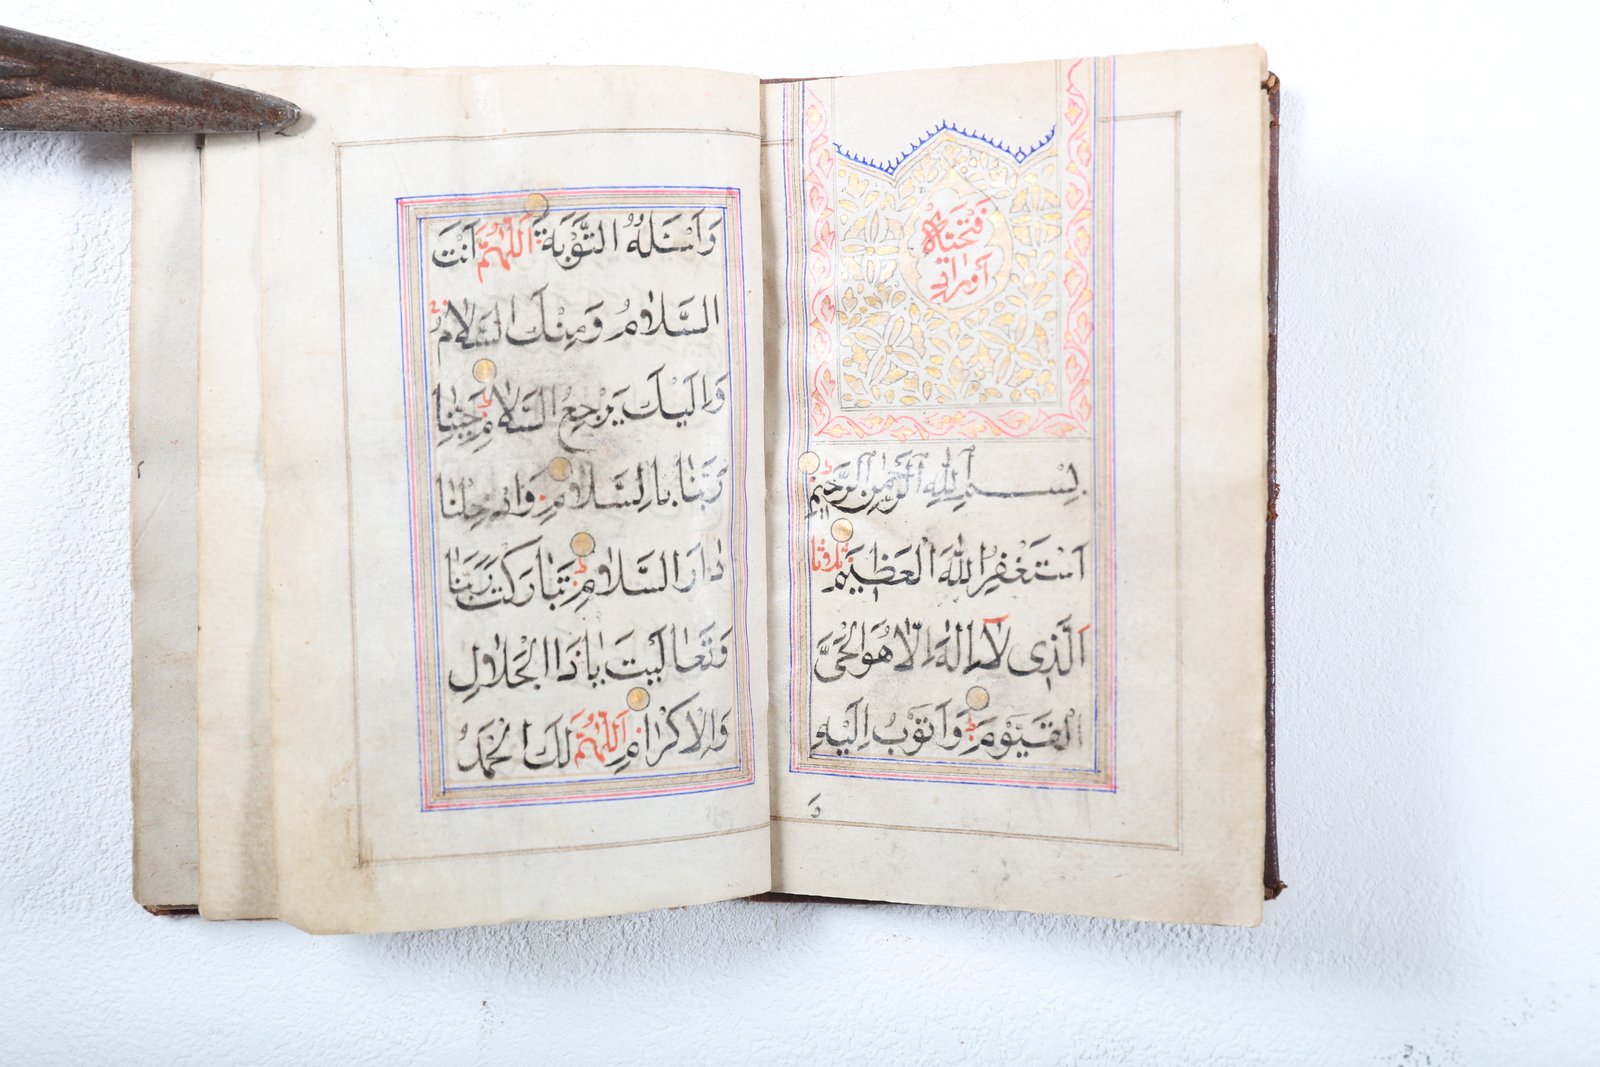 فتحیة
أوراد
بِسْمِ اللهِ الرَّحْمٰنِ الرَّحِيْمِ
اَسْتَغْفِرُ اللهَ الْعَظِيْمَ ثلاثا
اَلَّذِى لَآ اِلٰهَ اِلَّا هُوَ الْحَىَّ
الْقَيُّوْمَ وَاَتُوْبُ اِلَيْهِ
وَ
وَاَسْئَلُهُ التَّوْبَةَ اَللّٰهُمَّ اَنْتَ
السَّلَامُ وَمِنْكَ السَّلَامُ
وَاِلَيْكَ يَرْجِعُ السَّلَامُ حَيِّنَا
رَبَّنَا بِالسَّلَامِ وَادْخِلْنَا
دَارَ السَّلَامِ تَبَارَكْتَ رَبَّنَا
وَتَعَالَيْتَ يَا ذَا الْجَلَالِ
وَالْاِكْرَامِ اَللّٰهُمَّ لَكَ الْحَمْدُ